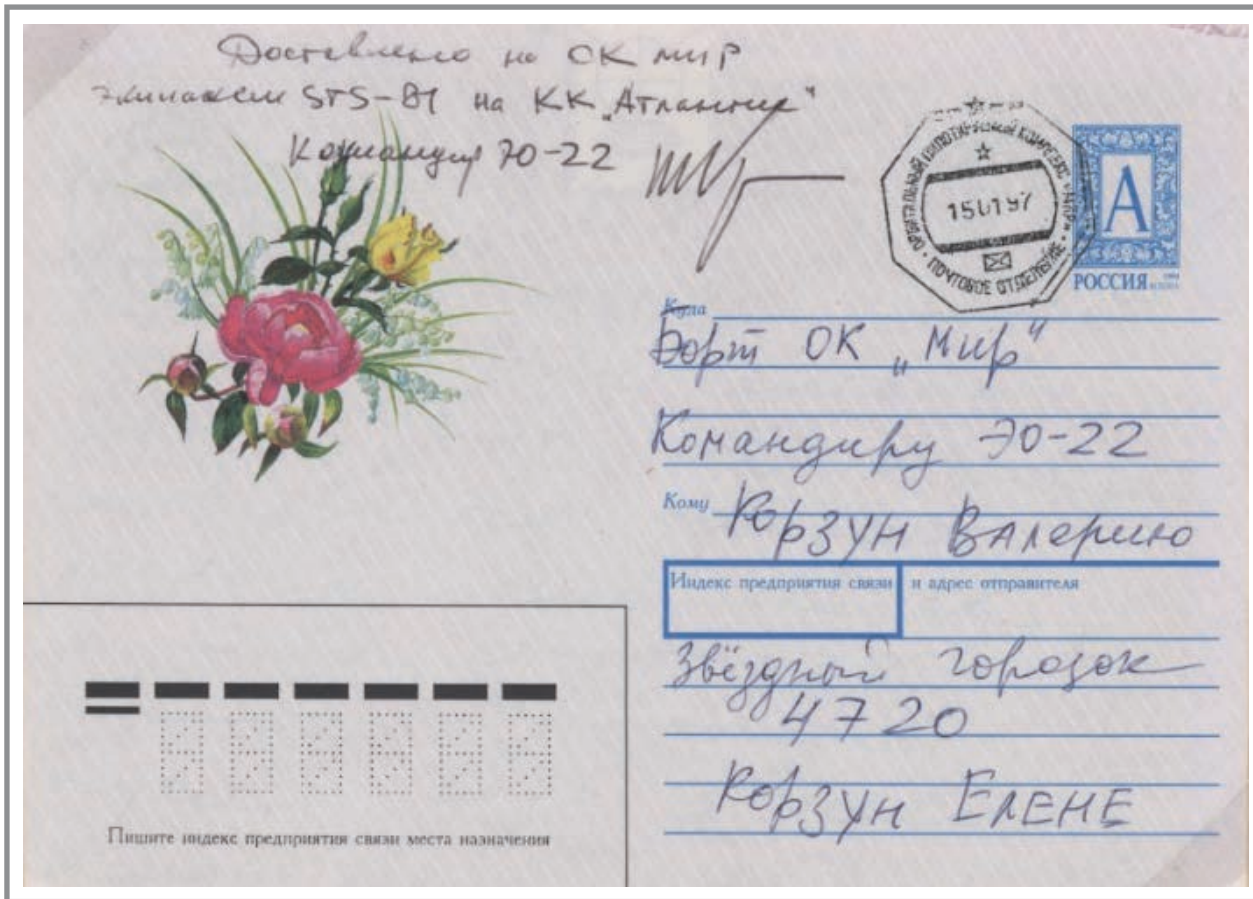 Доставлено на ОК МИР
экипажем STS-81 на КК „Атлантис“
Командир ЭО-22
ОРБИТАЛЬНЫЙ ПИЛОТИРУЕМЫЙ КОМПЛЕКС "МИР"
150197
ПОЧТОВОЕ ОТДЕЛЕНИЕ
А
РОССИЯ
Куда
Борт ОК „Мир“
Командиру ЭО-22
Кому
Корзун Валерию
Индекс предприятия связи и адрес отправителя
Звёздный городок
4720
Корзун ЕЛЕНЕ
Пишите индекс предприятия связи места назначения